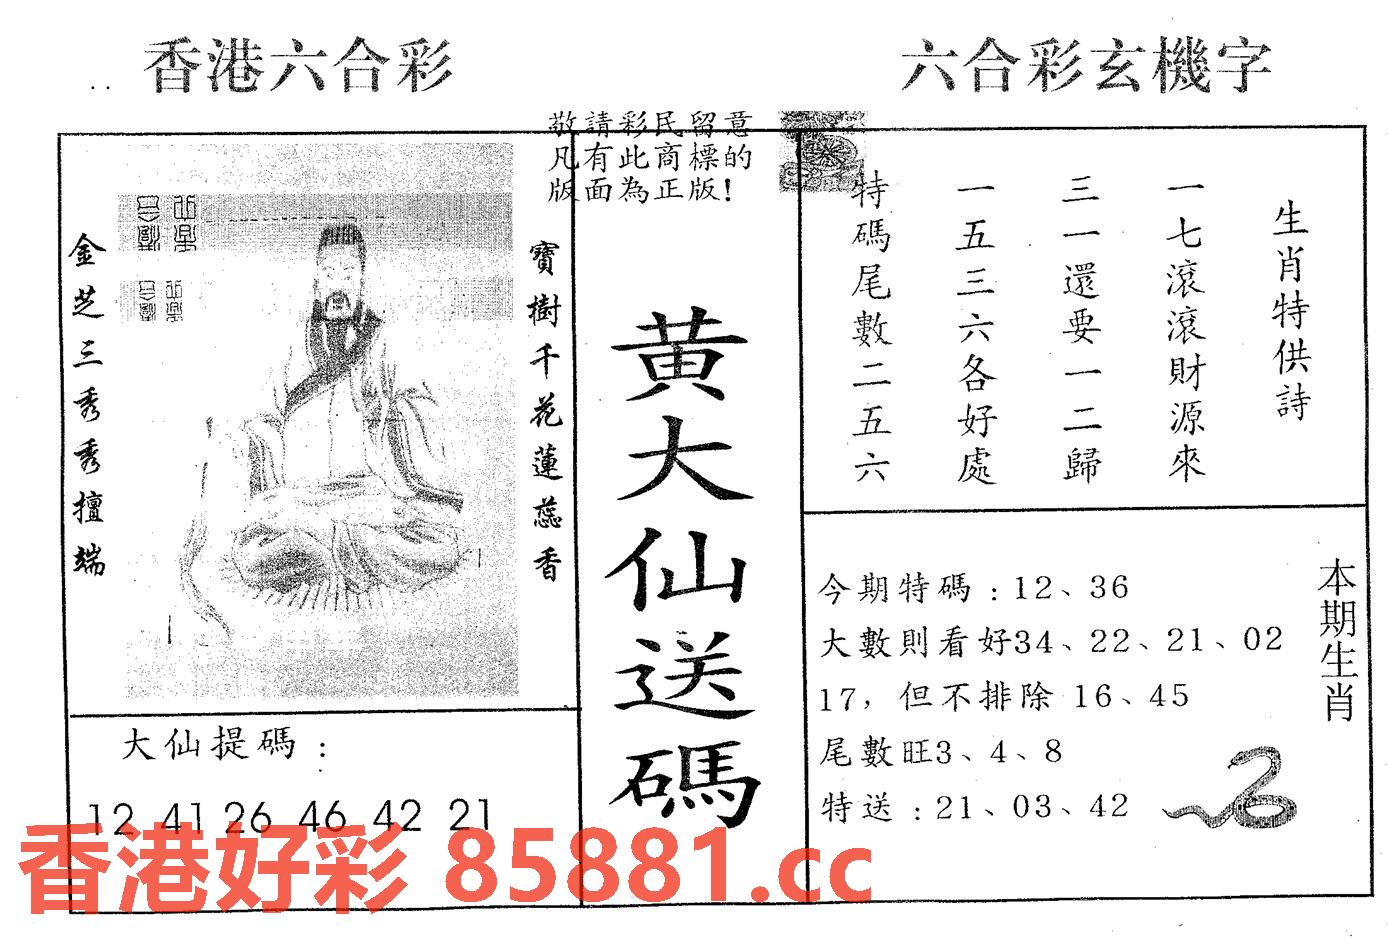 香港六合彩
六合彩玄機字
敬請彩民留意
凡有此商標的
版面為正版!
金芝三秀秀擅端
寶樹千花蓮蕊香
黃大仙送碼
生肖特供詩
一七滾滾財源來
三一還要一二歸
一五三六各好處
特碼尾數二五六
大仙提碼:
12 41 26 46 42 21
本期生肖
今期特碼:12、36
大數則看好34、22、21、02
17，但不排除 16、45
尾數旺3、4、8
特送:21、03、42
香港好彩 85881.cc